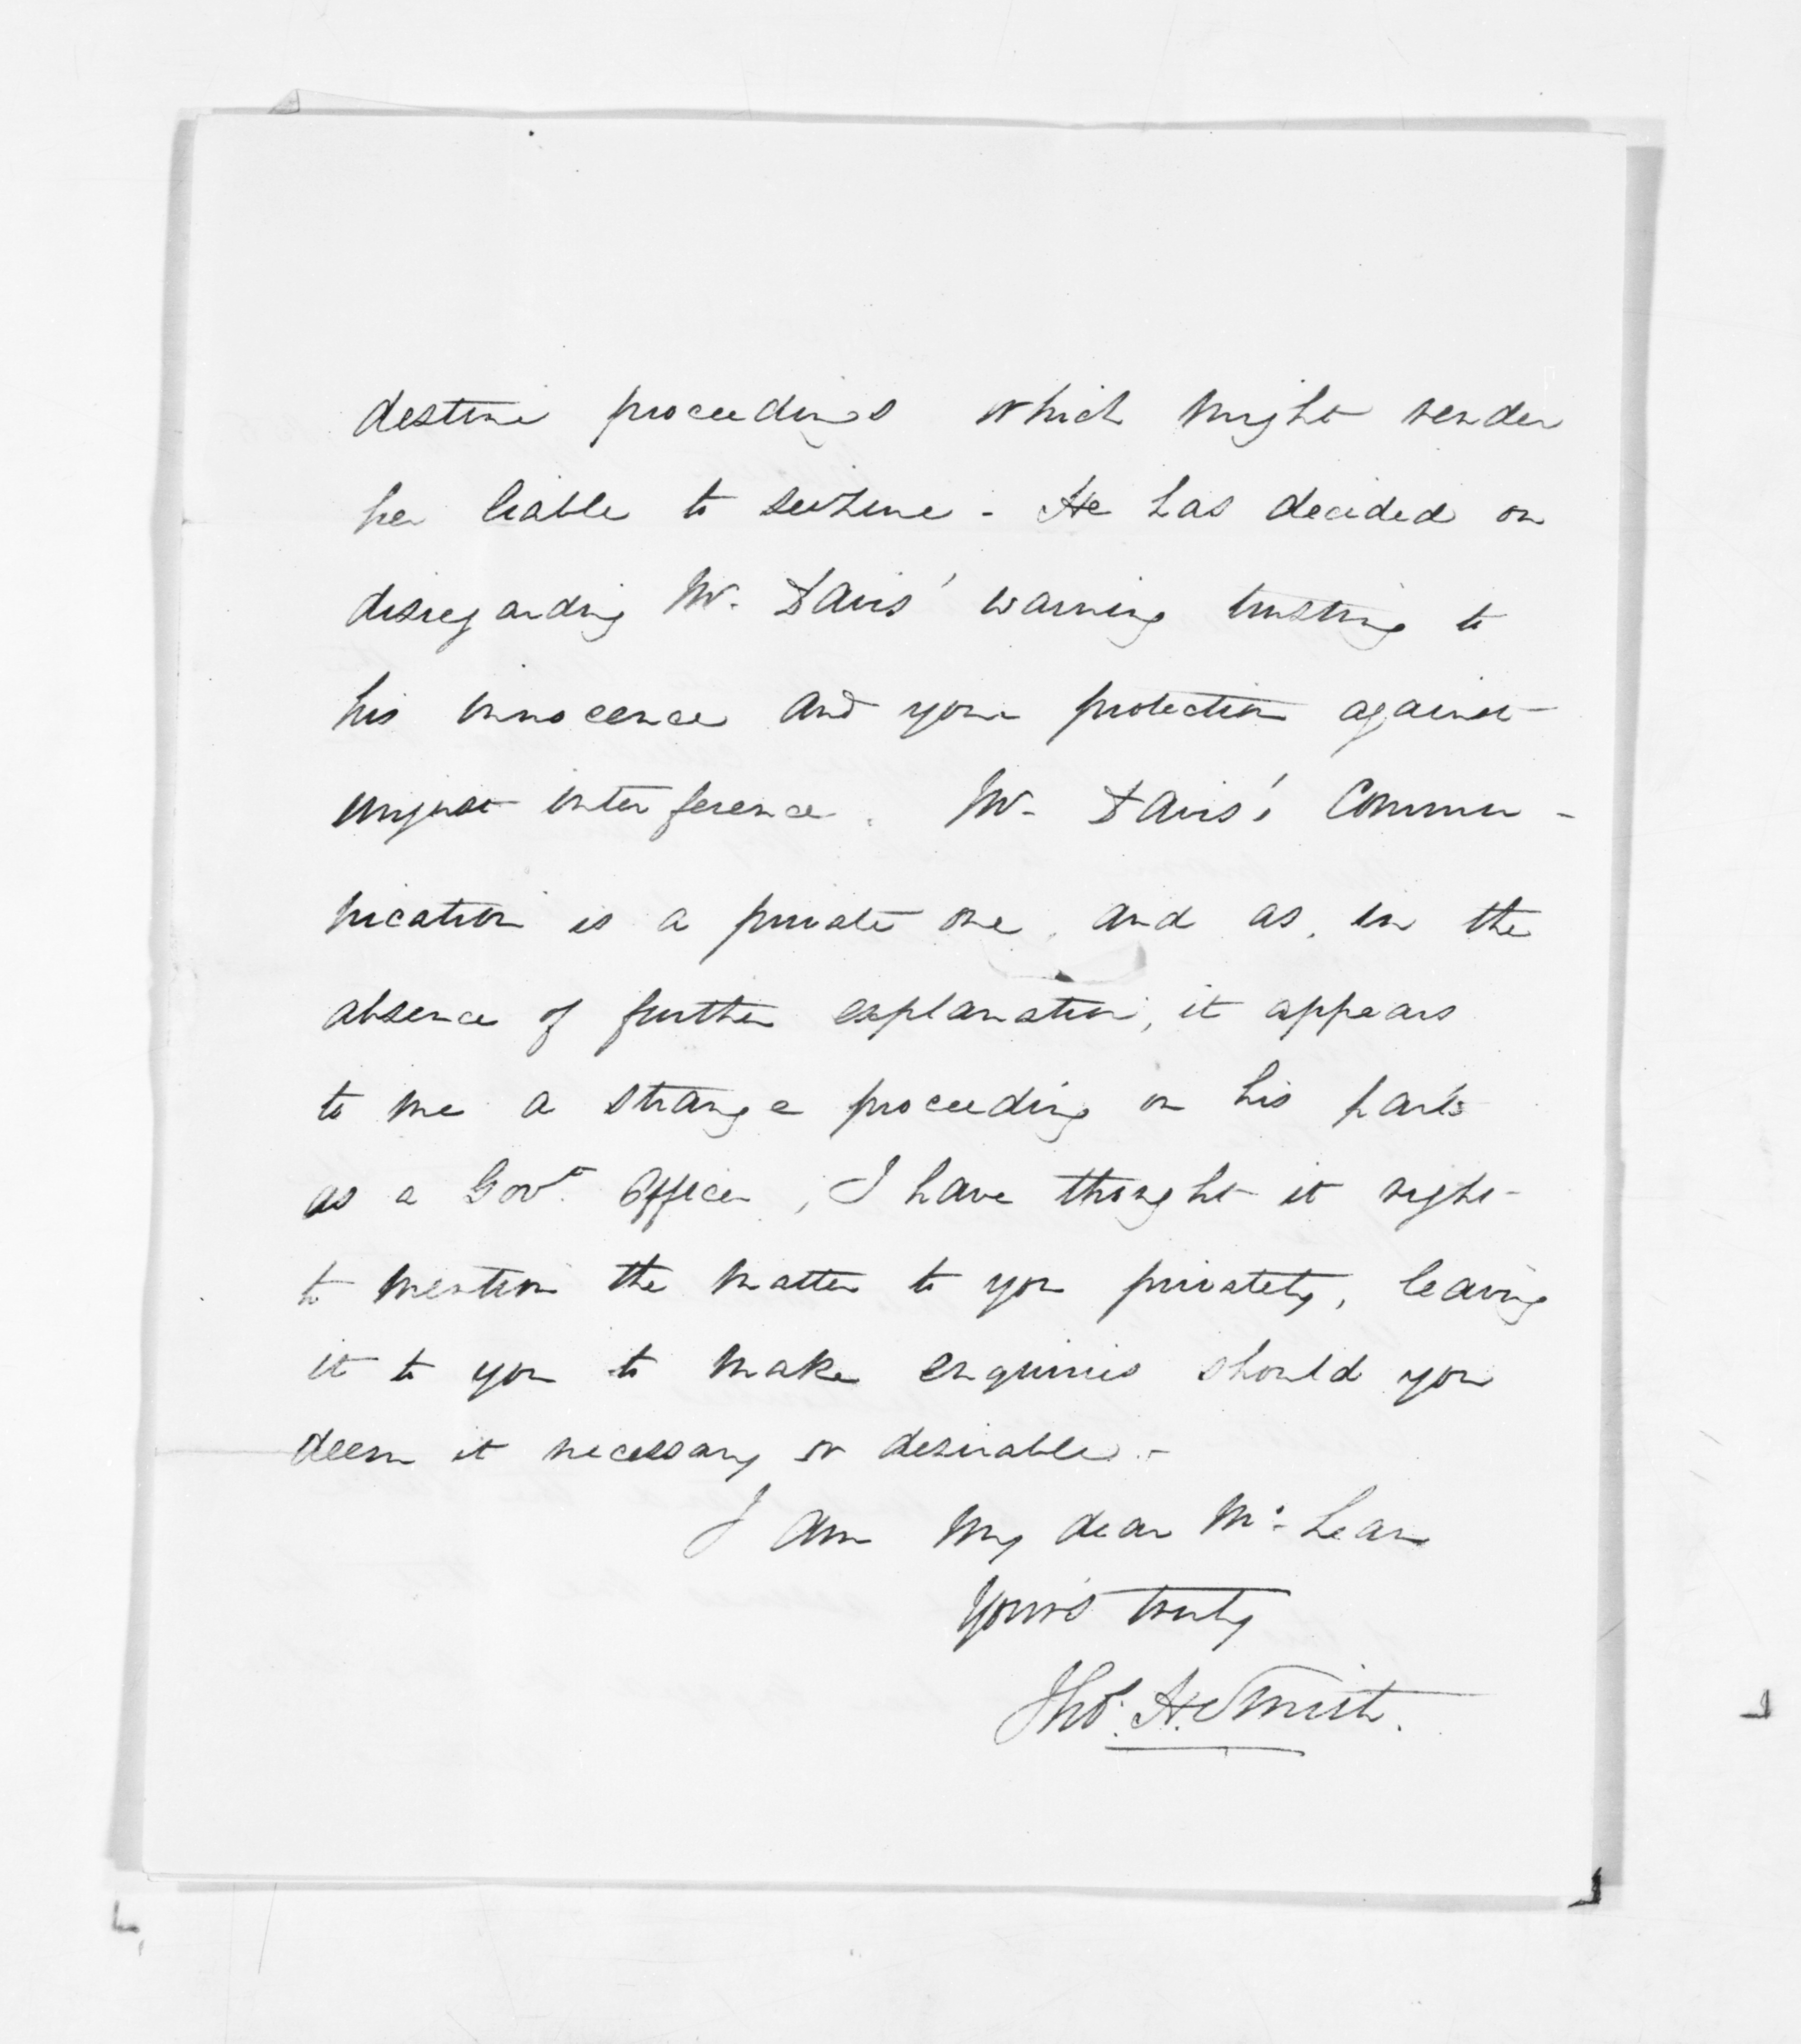 destine proceedings which might render
her liable to seizure - He has decided on
disregarding Mr. Davis' warning trusting to
his innocence and your protection against
unjust interference. Mr. Davis's Commu-
nication is a private one, and as, in the
absence of further explanation, it appears
to me a strange proceeding on his part
as a Govt. Officer, I have thought it right
to mention the matter to you privately, leaving
it to you to make enquiries should you
deem it necessary or desirable. -
I am my dear Mc.Lean
Yours truly
Thos. H. Smith.